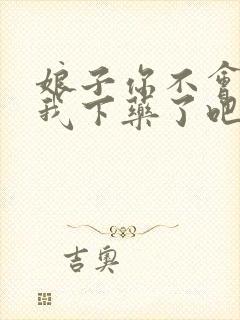 娘子你不會
我下藥了吧
吉奧